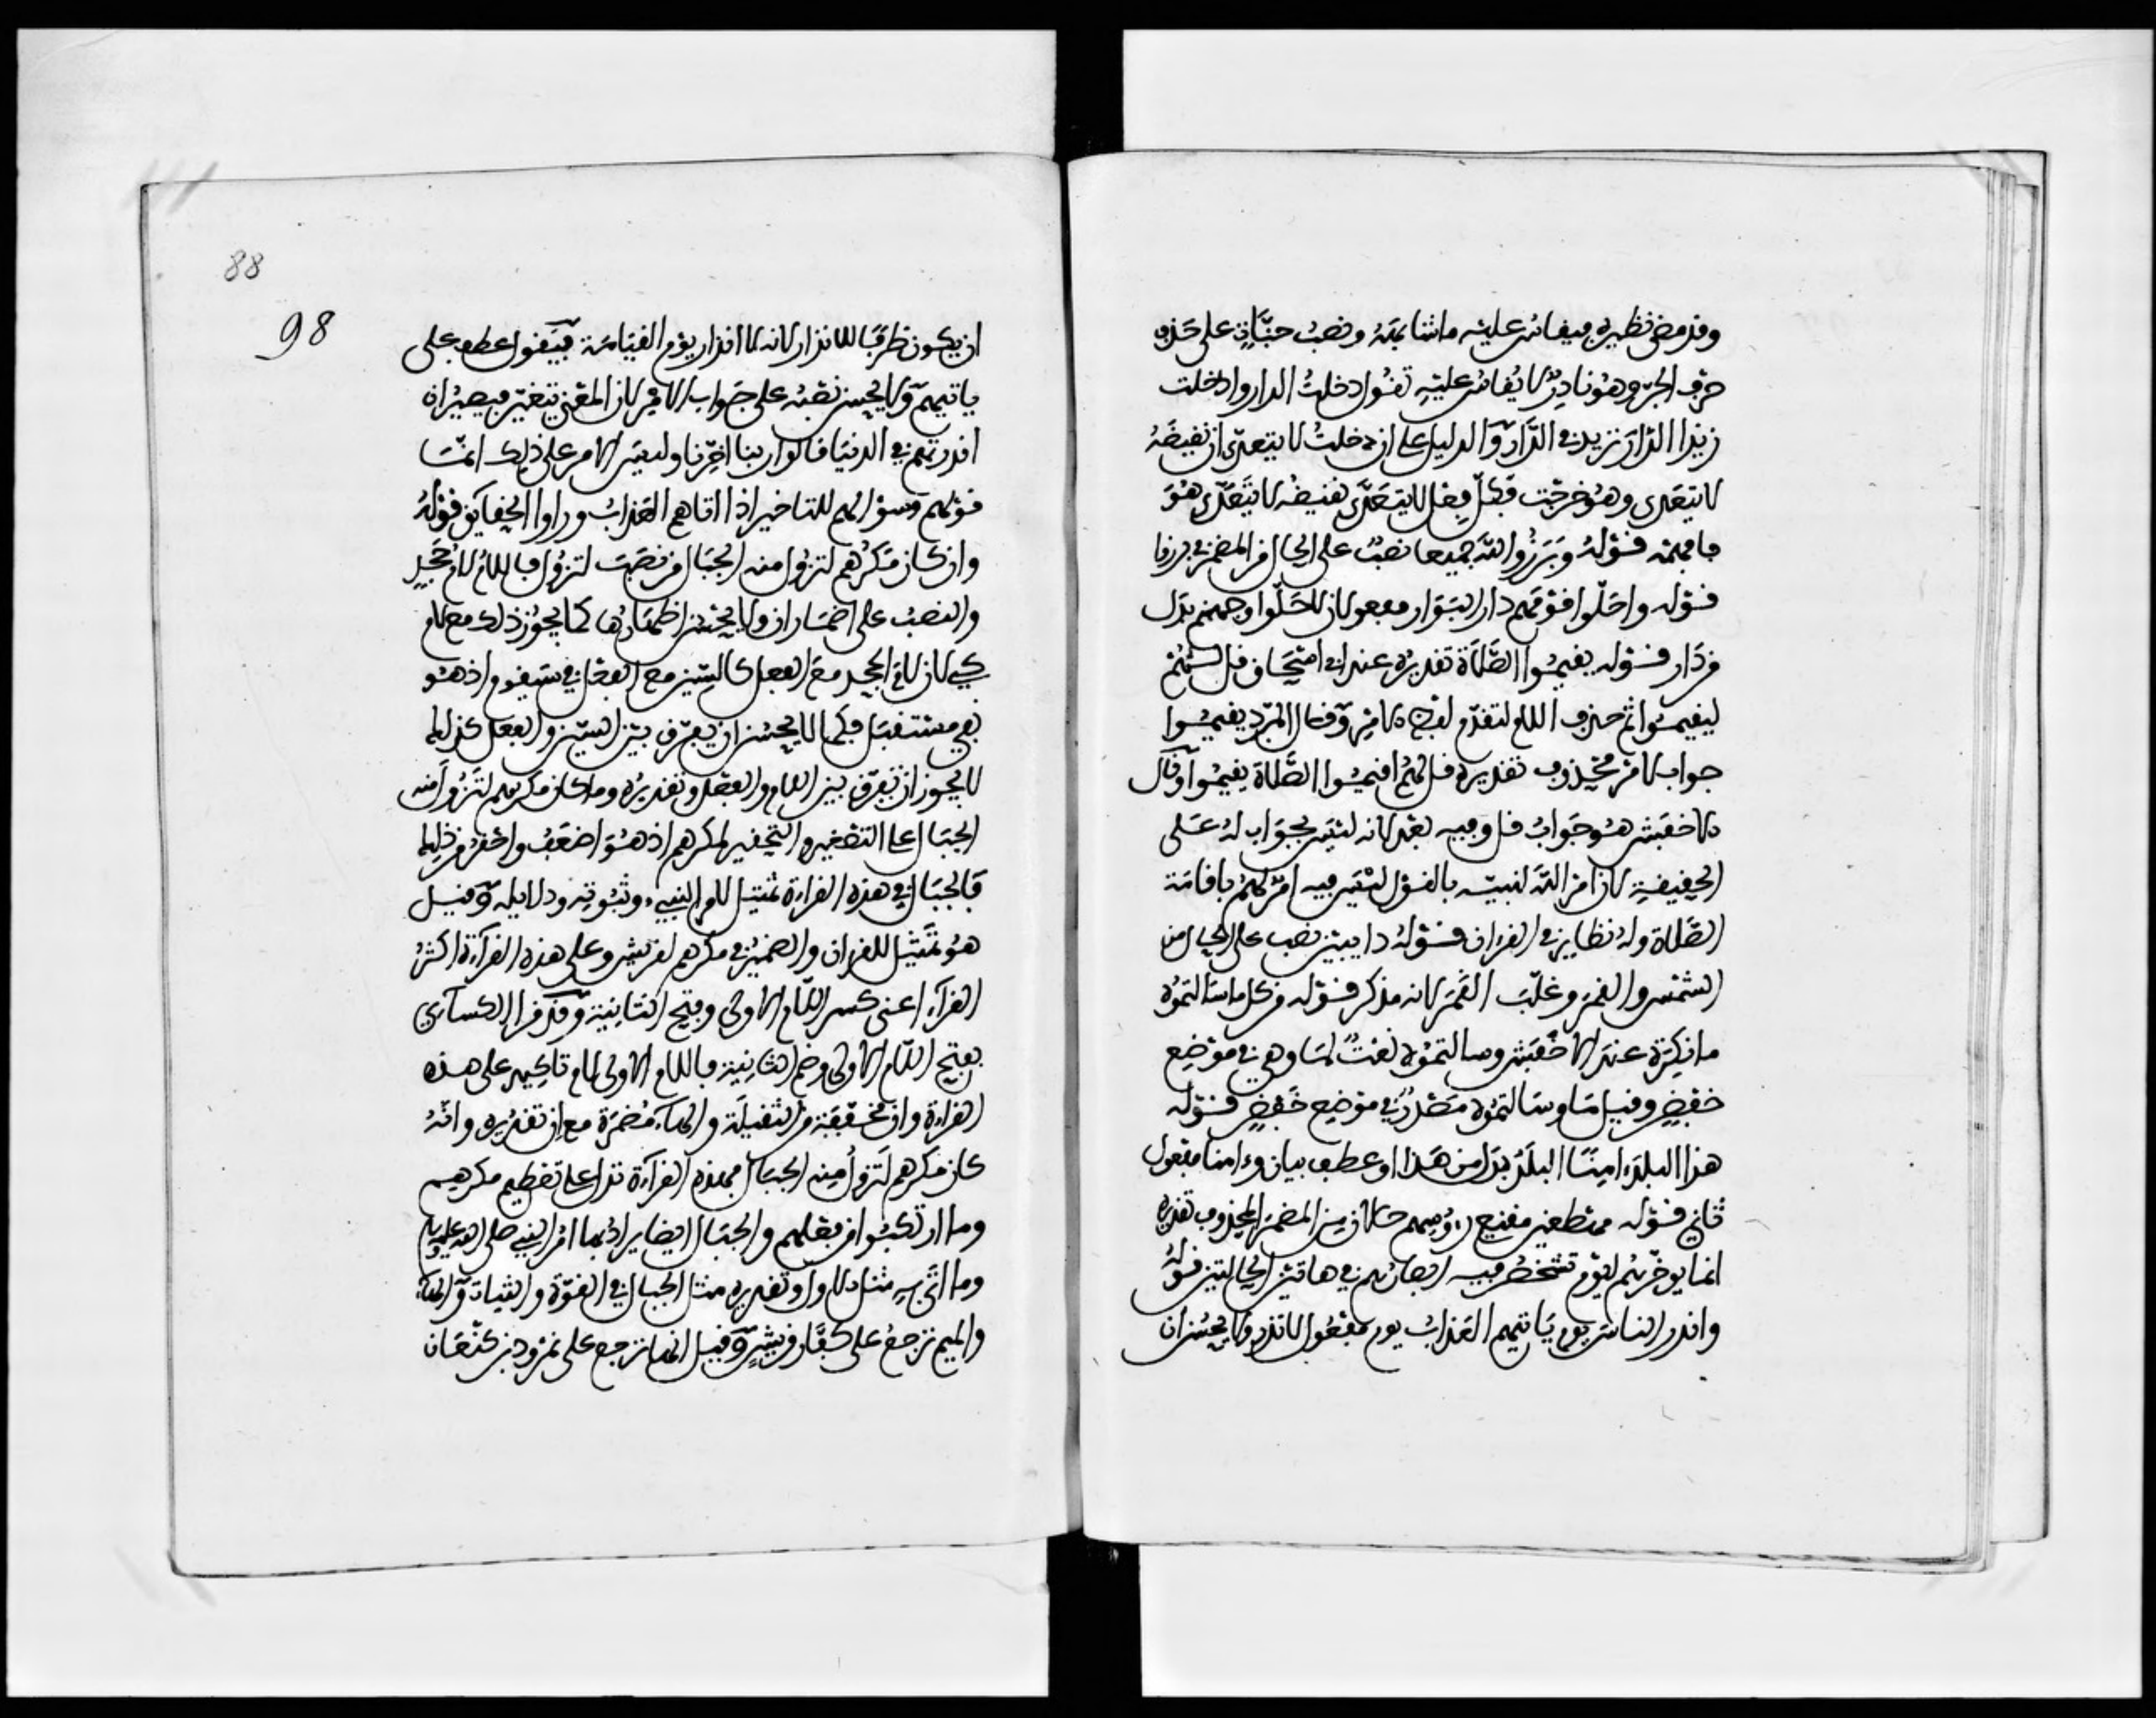 وقد مضى نظيره فيقاس عليه ما شابهه ونصب جنات على حذف
حرف الجر وهو نادر لا يقاس عليه تقول دخلت الدار وادخلت
زيدا الدار تريد في الدار والدليل على ان دخلت لا يتعدى ان نقيضه
لا يتعدى وهو خرجت فكل فعل لا يتعدى نقيضه لا يتعدى هو
فافهمه قوله وبرزوا لله جميعا نصب على الحال من المضمر في برزوا
قوله واحلوا قومهم دار البوار مفعولان لاحلوا وجهنم بدل
من دار قوله يقيموا الصلاة تقديره عند ابي اسحاق قل لهم
ليقيموا ثم حذف اللام لتقدم لفظ الامر وقال المبرد يقيموا
جواب لامر محذوف تقديره قل لهم اقيموا الصلاة يقيموا وقال
الاخفش هو جواب قل وفيه بعد لانه ليس بجواب له على
الحقيقة لان امر الله لنبيه بالقول ليس فيه امر لهم باقامة
الصلاة وله نظاير في القرءان قوله دايبين نصب على الحال من
الشمس والقمر وغلب القمر لانه مذكر قوله من كل ما سالتموه
ما نكرة عند الاخفش وسالتموه نعت لما وهي في موضع
خفض وقيل ما وسالتموه مصدر في موضع خفض قوله
هذا البلد ءامنا البلد بدل من هذا او عطف بيان وءامنا مفعول
ثاني قوله مهطعين مقنعي رءوسهم حالان من المضمر المحذوف تقديره
انما يوخرهم ليوم تشخص فيه ابصارهم في هاتين الحالتين قوله
وانذر الناس يوم ياتيهم العذاب يوم مفعول لانذر ولا يحسن ان
88
98
ان يكون ظرفا للانذار لانه لا انذار يوم القيامة فيقول عطف على
ياتيهم ولا يحسن نصبه على جواب الامر لان المعنى يتغير فيصير ان
انذرتهم في الدنيا قالوا ربنا اخرنا وليس الامر على ذلك انما
قولهم وسوالهم للتاخير اذا اتاهم العذاب وراوا الحقايق قوله
وان كان مكرهم لتزول منه الجبال من نصب لتزول فاللام لام جحد
والنصب على اضمار ان ولا يحسن اظهارها كما يجوز ذلك مع لام
كي لان لام الجحد مع الفعل كالسين مع الفعل في سيقوم اذ هو
نفي مستقبل فكما لا يحسن ان يفرق بين السين والفعل كذلك
لا يجوز ان تفرق بين اللام والفعل وتقديره وما كان مكرهم لتزول منه
الجبال على التصغير والتحقير لمكرهم اذ هو اضعف واحقر من ذلك
فالجبال في هذه القراءة تمثيل لامر النبيء وثبوته ودلايله وقيل
هو تمثيل للقرءان والضمير في مكرهم لقريش وعلى هذه القراءة اكثر
القراء اعني كسر اللام الاولى وفتح الثانية وقد قرا الكساءي
بفتح اللام الاولى وضم الثانية فاللام الاولى لام تاكيد على هذه
القراءة وان مخففة من الثقيلة والهاء مضمرة مع ان تقديره وانه
كان مكرهم لتزول منه الجبال فهذه القراءة تدل على تعظيم مكرهم
وما ارتكبوا من فعلهم والجبال ايضا يراد بها امر النبي صلى الله عليه وسلم
وما اتى به مثل الاول وتقديره مثل الجبال في القوة والثبات والهاء
والميم ترجع على كفار قريش وقيل انها ترجع على نمرود بن كنعان